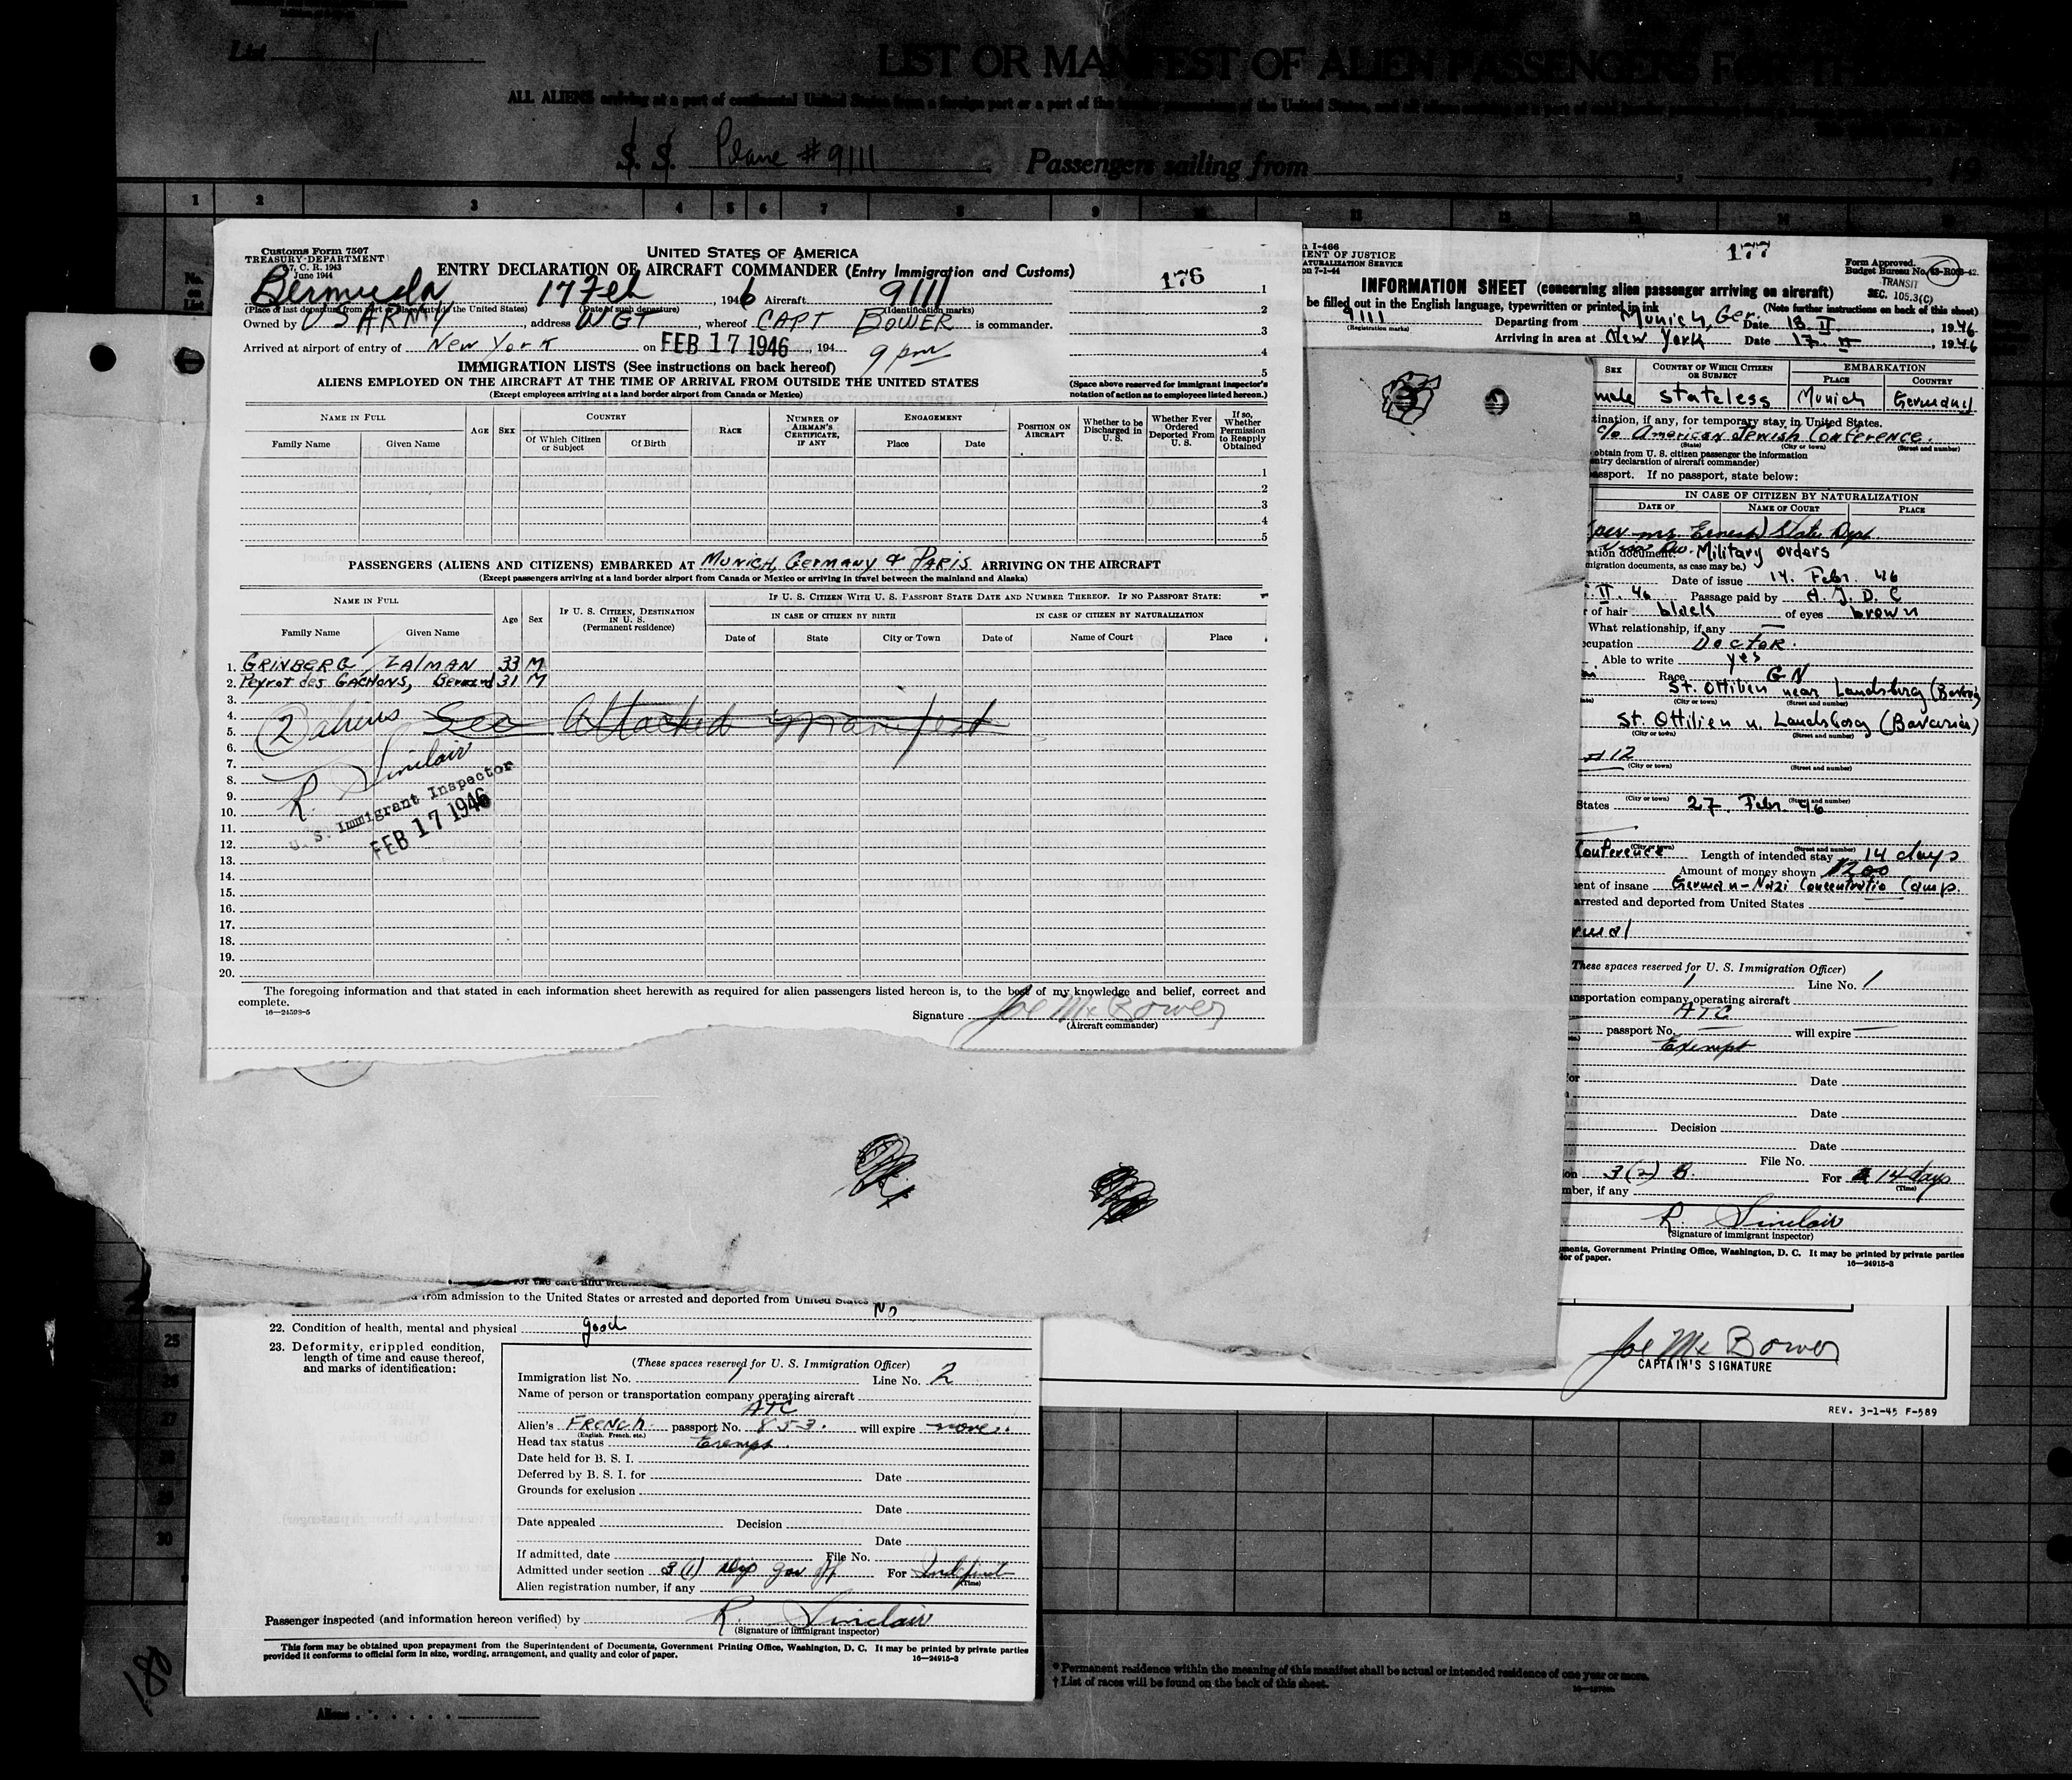 List 1
LIST OR MANIFEST OF ALIEN PASSENGERS FOR TH
ALL ALIENS arriving at a port of continental United States from a foreign port or a port of the insular possessions of the United States, and all aliens arriving at a port of said insular possessions
S. S. Plane #9111 Passengers sailing from , 19
1 2 3 4 5 6 7 8 9 10 11 12 13 14 15
Customs Form 7507
TREASURY DEPARTMENT
7, C. R. 1943
June 1944
UNITED STATES OF AMERICA
ENTRY DECLARATION OF AIRCRAFT COMMANDER (Entry Immigration and Customs)
176
Bermuda, 17 Feb, 1946 Aircraft 9111
(Place of last departure from port or place outside the United States) (Date of such departure) (Identification marks)
Owned by US ARMY, address WGT, whereof CAPT BOWER is commander.
Arrived at airport of entry of New York on FEB 17 1946, 194 9 pm
1
2
3
4
5
IMMIGRATION LISTS (See instructions on back hereof)
ALIENS EMPLOYED ON THE AIRCRAFT AT THE TIME OF ARRIVAL FROM OUTSIDE THE UNITED STATES
(Except employees arriving at a land border airport from Canada or Mexico)
(Space above reserved for immigrant inspector's
notation of action as to employees listed hereon.)
NAME IN FULL AGE SEX COUNTRY RACE NUMBER OF AIRMAN'S CERTIFICATE, IF ANY ENGAGEMENT POSITION ON AIRCRAFT Whether to be Discharged in U. S. Whether Ever Ordered Deported From U. S. If so, Whether Permission to Reapply Obtained
Family Name Given Name Of Which Citizen or Subject Of Birth Place Date
1
2
3
4
5
PASSENGERS (ALIENS AND CITIZENS) EMBARKED AT MUNICH, GERMANY & PARIS ARRIVING ON THE AIRCRAFT
(Except passengers arriving at a land border airport from Canada or Mexico or arriving in travel between the mainland and Alaska)
NAME IN FULL Age Sex IF U. S. CITIZEN, DESTINATION IN U. S. (Permanent residence) IF U. S. CITIZEN WITH U. S. PASSPORT STATE DATE AND NUMBER THEREOF. IF NO PASSPORT STATE:
IN CASE OF CITIZEN BY BIRTH IN CASE OF CITIZEN BY NATURALIZATION
Family Name Given Name Date of State City or Town Date of Name of Court Place
1. GRINBERG ZALMAN 33 M
2. Peyrot des GACHONS, Bernard 31 M
3.
4. 2 aliens See Attached Manifest
5.
6.
7. R. Sinclair
8.
9. U. S. Immigrant Inspector
10. FEB 17 1946
11.
12.
13.
14.
15.
16.
17.
18.
19.
20.
The foregoing information and that stated in each information sheet herewith as required for alien passengers listed hereon is, to the best of my knowledge and belief, correct and
complete.
16—24598-5
Signature Joe Mc Bower
(Aircraft commander)
n I-466
MENT OF JUSTICE
NATURALIZATION SERVICE
on 7-1-44
177
Form Approved.
Budget Bureau No. 43-R063-42.
TRANSIT
SEC. 105.3(C)
INFORMATION SHEET (concerning alien passenger arriving on aircraft)
be filled out in the English language, typewritten or printed in ink (Note further instructions on back of this sheet)
9111 Departing from Munich, Ger. Date 13 II, 1946
(Registration marks)
Arriving in area at New York Date 17 II, 1946
SEX COUNTRY OF WHICH CITIZEN OR SUBJECT EMBARKATION
PLACE COUNTRY
male stateless Munich Germany
tination, if any, for temporary stay in United States.
c/o American Jewish Conference.
(State) (City or town) (Street and number)
obtain from U. S. citizen passenger the information
entry declaration of aircraft commander)
assport. If no passport, state below:
IN CASE OF CITIZEN BY NATURALIZATION
DATE OF NAME OF COURT PLACE
(per mr. Ernest) State Dept.
ation document: Military orders
migration documents, as case may be.)
Date of issue 14. Febr. 46
. II. 46 Passage paid by A. J. D. C
r of hair black of eyes brown
What relationship, if any —
ccupation Doctor.
Able to write yes
Race GN
St. Ottilien near Landsberg (Bavaria)
(City or town) (Street and number)
St. Ottilien n. Landsberg (Bavaria)
(City or town) (Street and number)
#12
(City or town) (Street and number)
States 27. Febr. 46
(City or town) (Street and number)
Conference Length of intended stay 14 days
(City or town) (Street and number)
Amount of money shown $200
ent of insane German-Nazi Concentratio Camp.
arrested and deported from United States
rmal
These spaces reserved for U. S. Immigration Officer)
1 Line No. 1
nsportation company operating aircraft
ATC
passport No. — will expire —
Exempt
for Date
Date
Decision
Date
File No.
ion 3(2) B For 14 days
(Time)
mber, if any
R. Sinclair
(Signature of immigrant inspector)
ments, Government Printing Office, Washington, D. C. It may be printed by private parties
lor of paper.
16—24915-3
Joe Mc Bower
CAPTAIN'S SIGNATURE
REV. 3-1-45 F-589
for the care and
from admission to the United States or arrested and deported from United States No
22. Condition of health, mental and physical good
23. Deformity, crippled condition,
length of time and cause thereof,
and marks of identification:
(These spaces reserved for U. S. Immigration Officer)
Immigration list No. 1 Line No. 2
Name of person or transportation company operating aircraft
ATC
Alien's FRENCH passport No. 853. will expire none.
(English, French, etc.)
Head tax status Exempt.
Date held for B. S. I.
Deferred by B. S. I. for Date
Grounds for exclusion
Date
Date appealed Decision
Date
If admitted, date File No.
Admitted under section 3(1) gov off For Indefinit
(Time)
Alien registration number, if any
Passenger inspected (and information hereon verified) by R. Sinclair
(Signature of immigrant inspector)
This form may be obtained upon prepayment from the Superintendent of Documents, Government Printing Office, Washington, D. C. It may be printed by private parties
provided it conforms to official form in size, wording, arrangement, and quality and color of paper.
16—24915-3
25
26
27
28
29
30
* Permanent residence within the meaning of this manifest shall be actual or intended residence of one year or more.
† List of races will be found on the back of this sheet.
Aliens
181